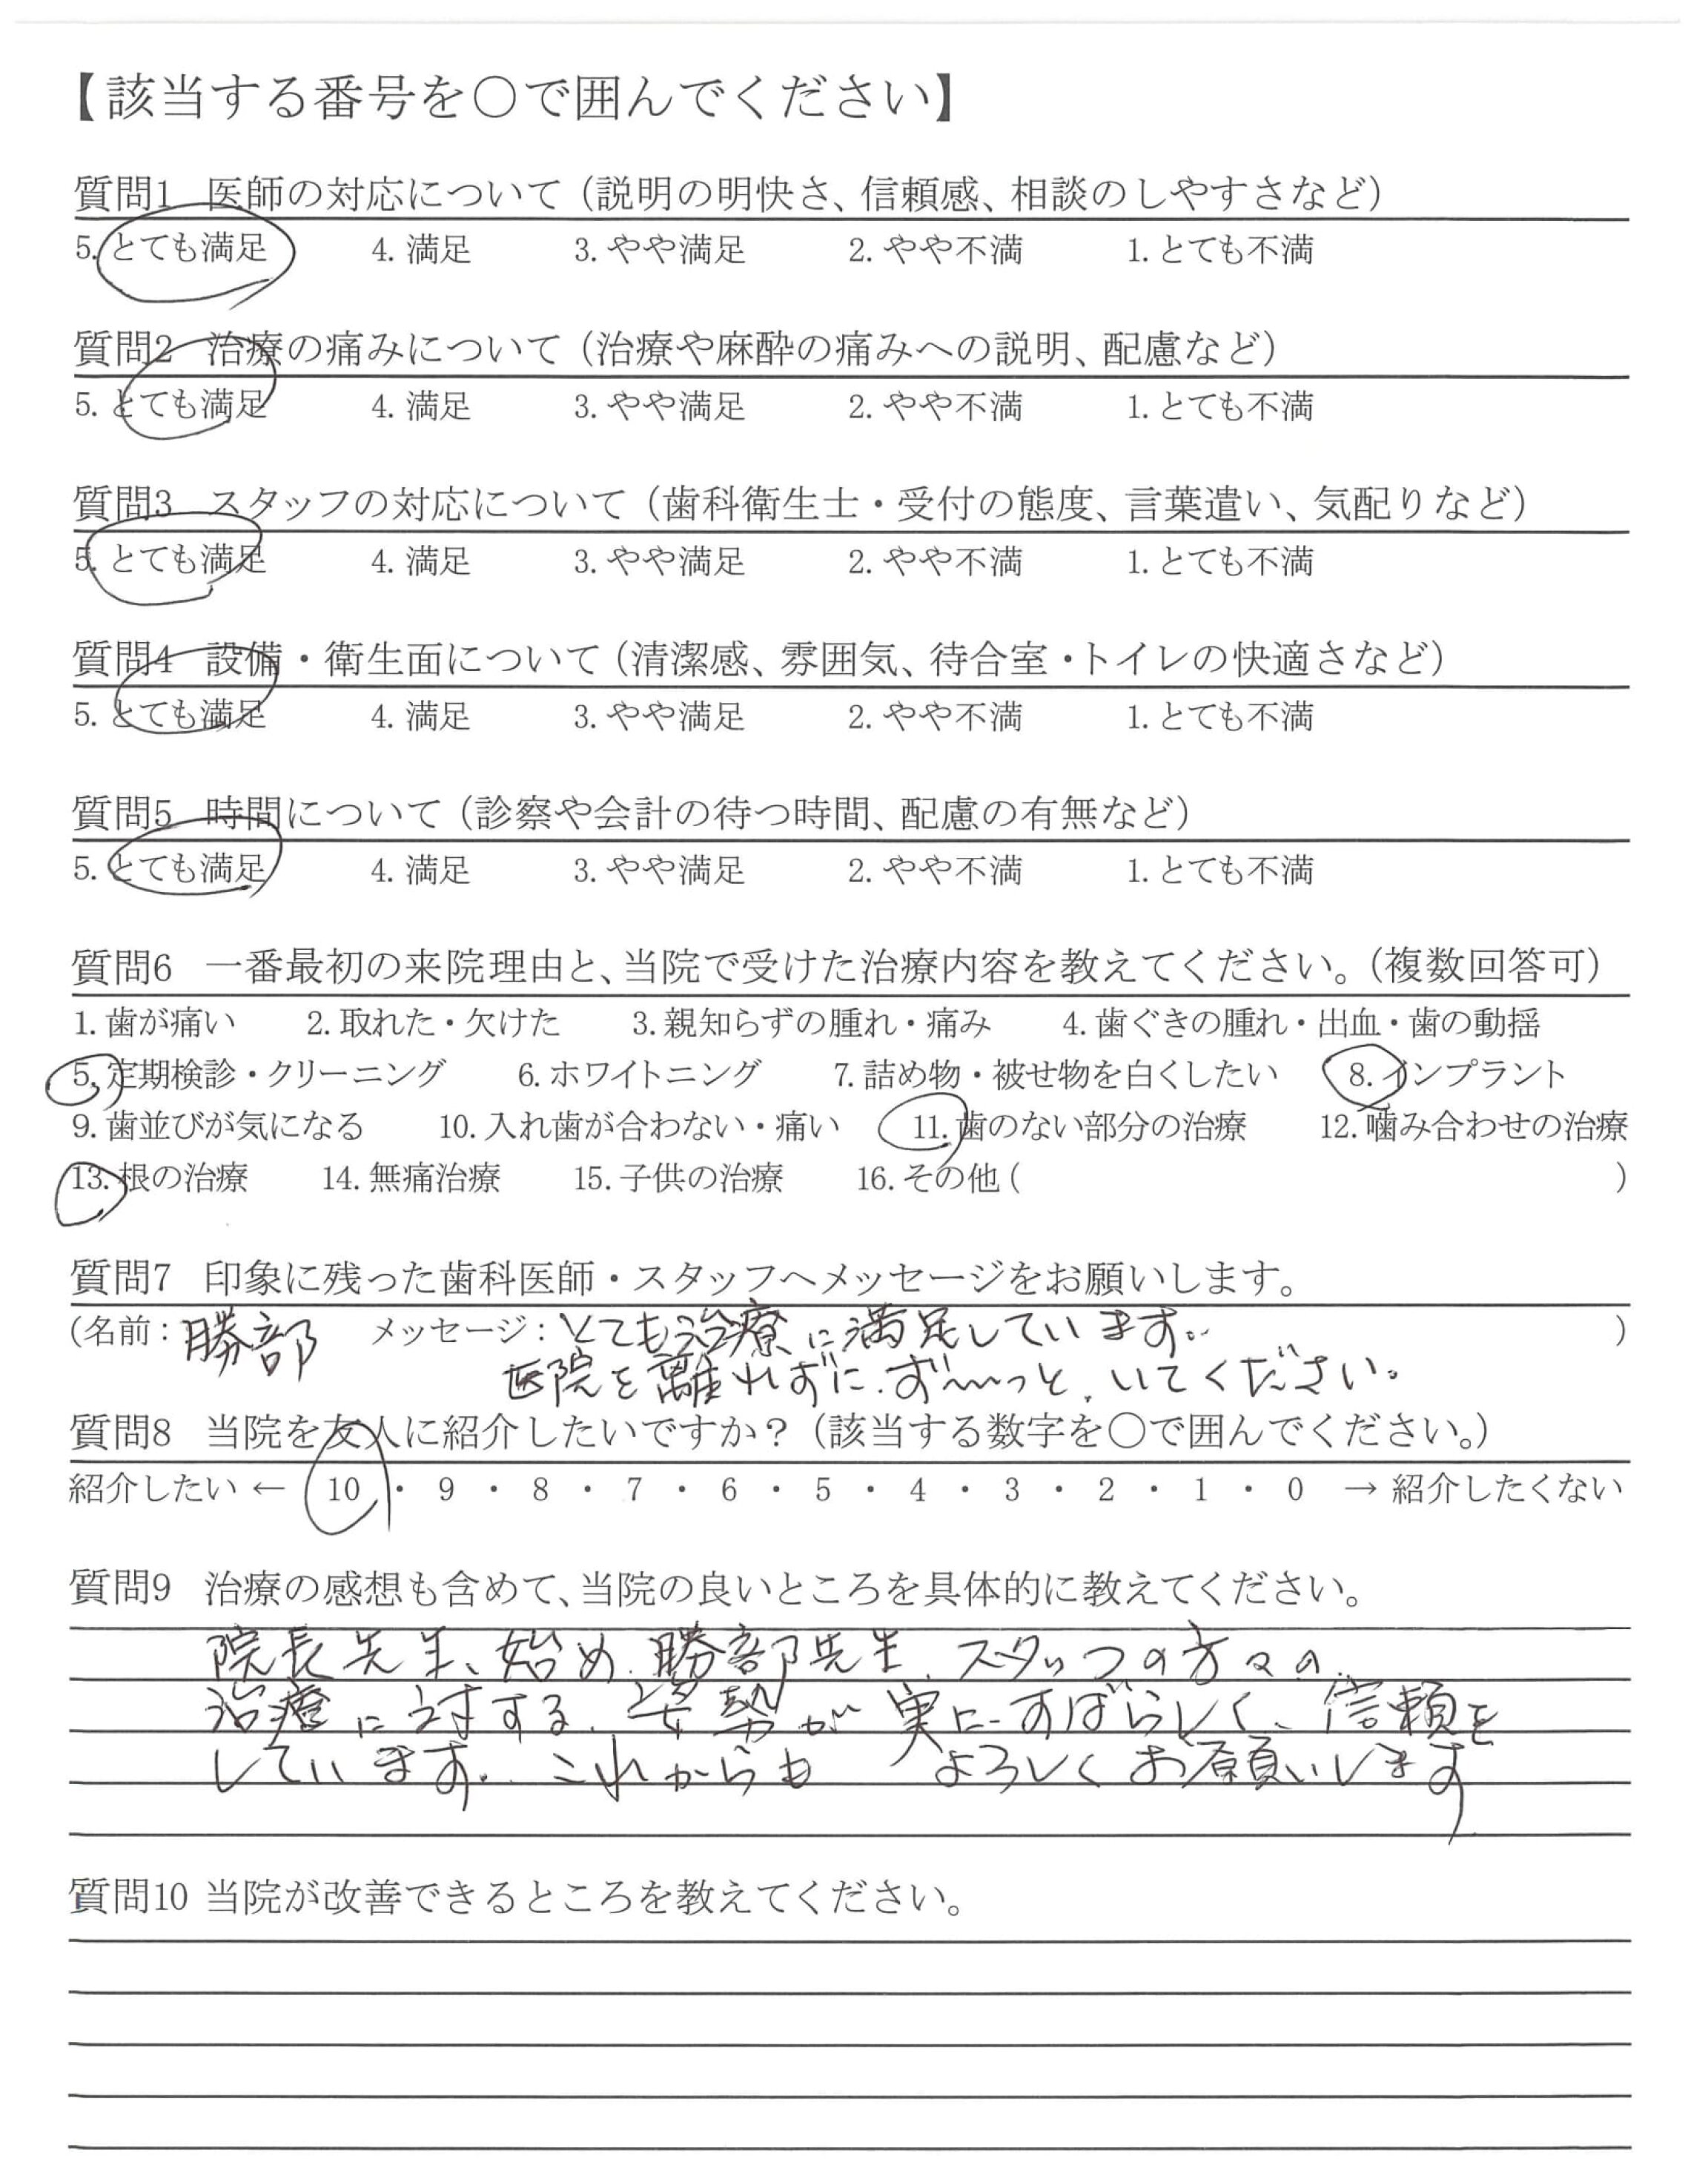 【該当する番号を○で囲んでください】
質問1 医師の対応について（説明の明快さ、信頼感、相談のしやすさなど）
5. とても満足 4. 満足 3. やや満足 2. やや不満 1. とても不満
質問2 治療の痛みについて（治療や麻酔の痛みへの説明、配慮など）
5. とても満足 4. 満足 3. やや満足 2. やや不満 1. とても不満
質問3 スタッフの対応について（歯科衛生士・受付の態度、言葉遣い、気配りなど）
5. とても満足 4. 満足 3. やや満足 2. やや不満 1. とても不満
質問4 設備・衛生面について（清潔感、雰囲気、待合室・トイレの快適さなど）
5. とても満足 4. 満足 3. やや満足 2. やや不満 1. とても不満
質問5 時間について（診察や会計の待つ時間、配慮の有無など）
5. とても満足 4. 満足 3. やや満足 2. やや不満 1. とても不満
質問6 一番最初の来院理由と、当院で受けた治療内容を教えてください。（複数回答可）
1. 歯が痛い 2. 取れた・欠けた 3. 親知らずの腫れ・痛み 4. 歯ぐきの腫れ・出血・歯の動揺
5. 定期検診・クリーニング 6. ホワイトニング 7. 詰め物・被せ物を白くしたい 8. インプラント
9. 歯並びが気になる 10. 入れ歯が合わない・痛い 11. 歯のない部分の治療 12. 噛み合わせの治療
13. 根の治療 14. 無痛治療 15. 子供の治療 16. その他（ ）
質問7 印象に残った歯科医師・スタッフへメッセージをお願いします。
（名前：勝部 メッセージ：とても治療に満足しています。 ）
医院を離れずに、ず〜〜っと、いてください。
質問8 当院を友人に紹介したいですか？（該当する数字を○で囲んでください。）
紹介したい ← 10 ・ 9 ・ 8 ・ 7 ・ 6 ・ 5 ・ 4 ・ 3 ・ 2 ・ 1 ・ 0 → 紹介したくない
質問9 治療の感想も含めて、当院の良いところを具体的に教えてください。
院長先生、始め、勝部先生、スタッフの方々の
治療に対する、姿勢が実にすばらしく、信頼を
しています。これからも よろしくお願いします
質問10 当院が改善できるところを教えてください。